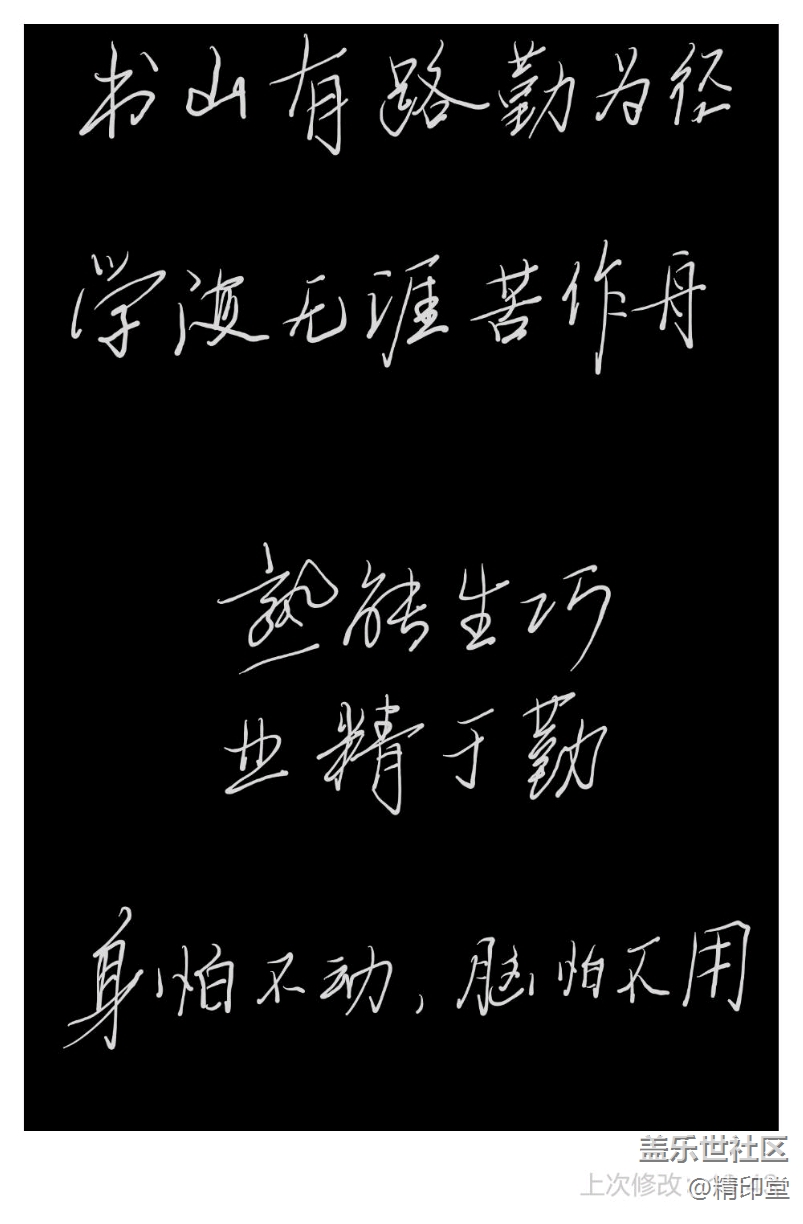 书山有路勤为径
学海无涯苦作舟
熟能生巧
业精于勤
身怕不动，脑怕不用
盖乐世社区
上次修改：
@精印堂